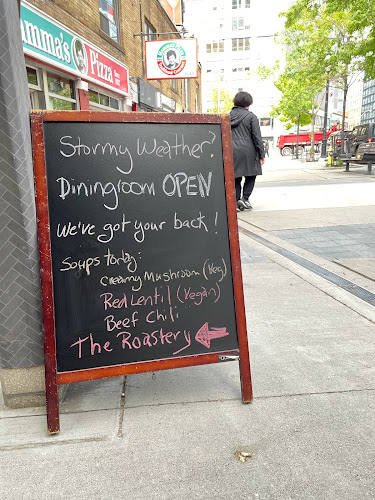 amma's Pizza
Stormy Weather?
Diningroom OPEN
We've got your back!
Soups today:
Creamy Mushroom (Veg)
Red Lentil (Vegan)
Beef Chili
The Roastery